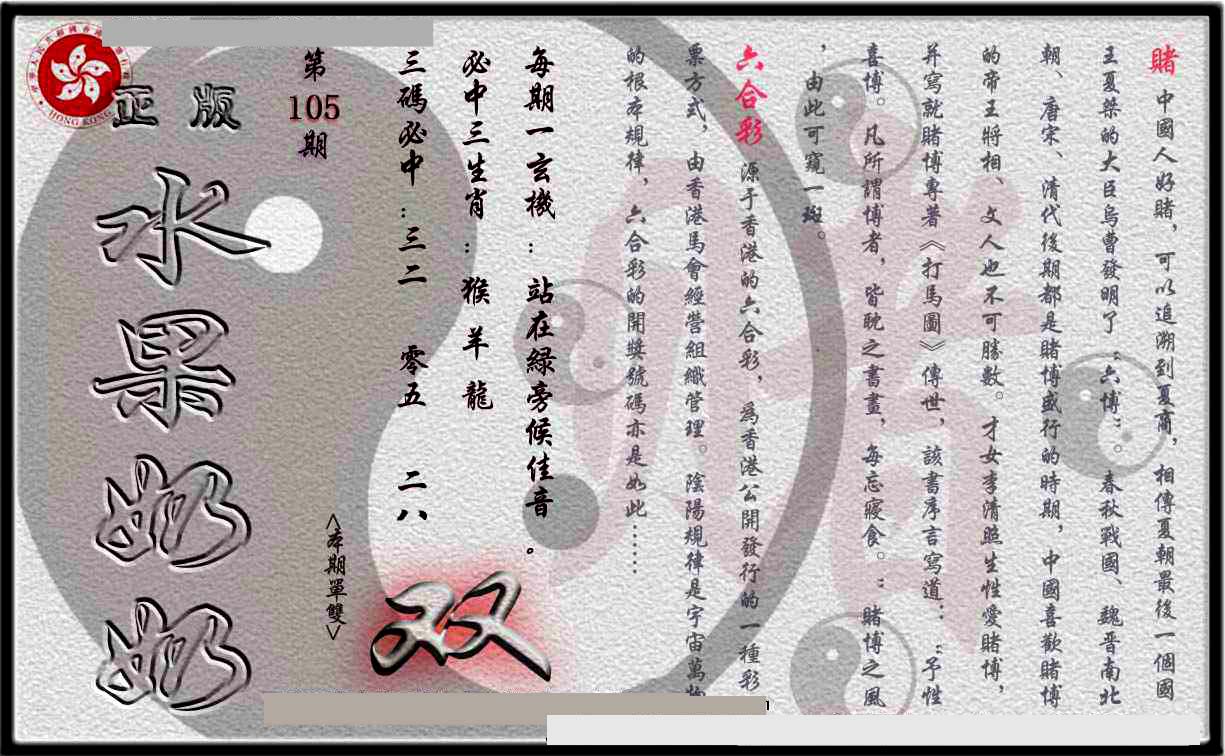 賭 中國人好賭，可以追溯到夏商，相傳夏朝最後一個國
王夏桀的大臣烏曹發明了“六博”。春秋戰國、魏晋南北
朝、唐宋、清代後期都是賭博盛行的時期，中國喜歡賭博
的帝王將相、文人也不可勝數。才女李清照生性愛賭博，
并寫就賭博專著《打馬圖》傳世，該書序言寫道：“予性
喜博。凡所謂博者，皆耽之書畫，每忘寢食。”賭博之風
，由此可窺一斑。
六合彩 源于香港的六合彩，為香港公開發行的一種彩
票方式，由香港馬會經營組織管理。陰陽規律是宇宙萬物
的根本規律，六合彩的開獎號碼亦是如此……
每期一玄機：站在綠旁候佳音。
必中三生肖：猴 羊 龍
三碼必中：三二 零五 二八
<本期單雙>
双
第
105
期
正版
水果奶奶
HONG KONG